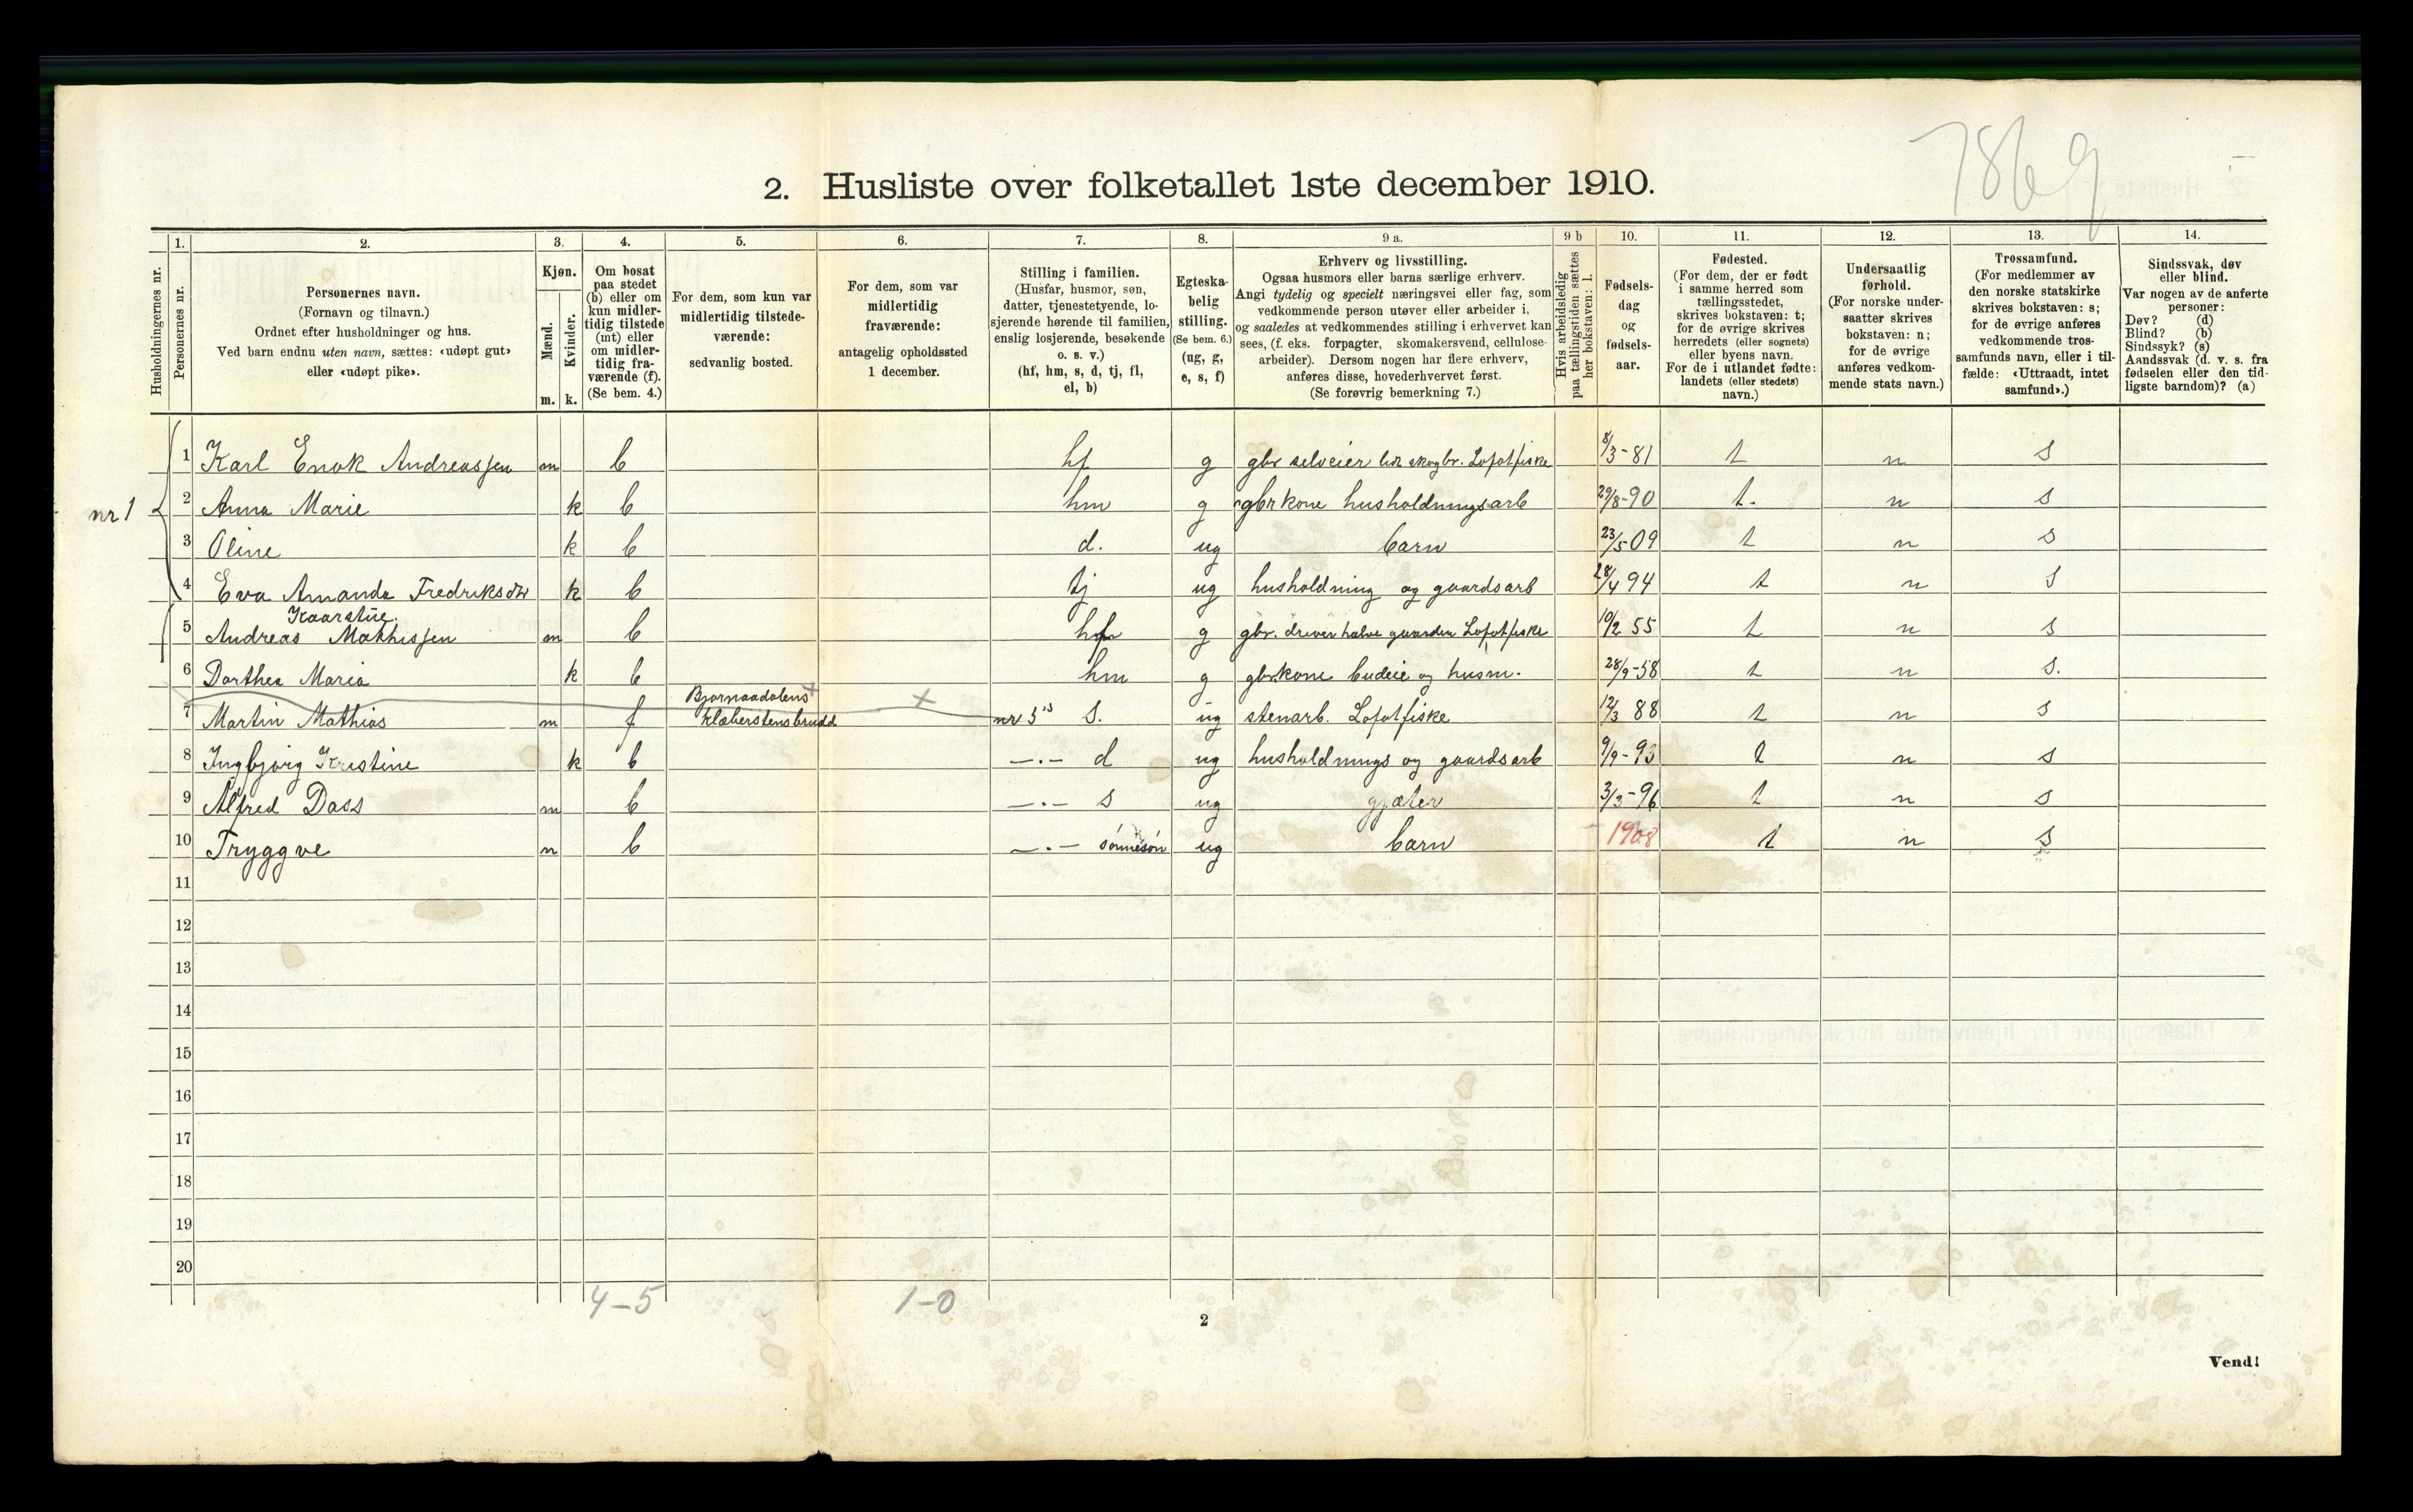 7869
2. Husliste over folketallet 1ste december 1910.
Husholdningernes nr.
1.
Personernes nr.
2.
Personernes navn.
(Fornavn og tilnavn.)
Ordnet efter husholdninger og hus.
Ved barn endnu uten navn, sættes: «udøpt gut»
eller «udøpt pike».
3.
Kjøn.
Mænd.
Kvinder.
m. k.
4.
Om bosat
paa stedet
(b) eller om
kun midler-
tidig tilstede
(mt) eller
om midler-
tidig fra-
værende (f).
(Se bem. 4.)
5.
For dem, som kun var
midlertidig tilstede-
værende:
sedvanlig bosted.
6.
For dem, som var
midlertidig
fraværende:
antagelig opholdssted
1 december.
7.
Stilling i familien.
(Husfar, husmor, søn,
datter, tjenestetyende, lo-
sjerende hørende til familien,
enslig losjerende, besøkende
o. s. v.)
(hf, hm, s, d, tj, fl,
el, b)
8.
Egteska-
belig
stilling.
(Se bem. 6.)
(ug, g,
e, s, f)
9 a.
Erhverv og livsstilling.
Ogsaa husmors eller barns særlige erhverv.
Angi tydelig og specielt næringsvei eller fag, som
vedkommende person utøver eller arbeider i,
og saaledes at vedkommendes stilling i erhvervet kan
sees, (f. eks. forpagter, skomakersvend, cellulose-
arbeider). Dersom nogen har flere erhverv,
anføres disse, hovederhvervet først.
(Se forøvrig bemerkning 7.)
9 b
Hvis arbeidsledig
paa tællingstiden sættes
her bokstaven: l.
10.
Fødsels-
dag
og
fødsels-
aar.
11.
Fødested.
(For dem, der er født
i samme herred som
tællingsstedet,
skrives bokstaven: t;
for de øvrige skrives
herredets (eller sognets)
eller byens navn.
For de i utlandet fødte:
landets (eller stedets)
navn.)
12.
Undersaatlig
forhold.
(For norske under-
saatter skrives
bokstaven: n;
for de øvrige
anføres vedkom-
mende stats navn.)
13.
Trossamfund.
(For medlemmer av
den norske statskirke
skrives bokstaven: s;
for de øvrige anføres
vedkommende tros-
samfunds navn, eller i til-
fælde: «Uttraadt, intet
samfund».)
14.
Sindssvak, døv
eller blind.
Var nogen av de anførte
personer:
Døv? (d)
Blind? (b)
Sindssyk? (s)
Aandssvak (d. v. s. fra
fødselen eller den tid-
ligste barndom)? (a)
1 Karl Enok Andreassen m b hf g gbr selveier skogbr. Lofotfiske 8/3-81 t n s
nr 1
2 Anna Marie k b hm g gbrkone husholdningsarb 29/8-90 t. n s
3 Oline k b d. ug barn 23/5 09 t n s
4 Eva Amanda Fredriksdtr k b tj ug husholdning og gaardsarb 28/4 94 t n s
Kaarstue.
5 Andreas Mathissen m b hf g gbr. driver halve gaarden Lofotfiske 10/2 55 t n s
6 Dorthea Maria k b hm g gbrkone budeie og husm. 28/9-58 t n s.
Bjørnaadalens × ×
7 Martin Mathias m f klæberstensbrudd nr 5's s. ug stenarb. Lofotfiske 12/3 88 t n s
8 Ingbjørg Kristine k b —.— d ug husholdnings og gaardsarb 9/9-93 t n s
9 Alfred Dass m b —.— s ug gjæter 3/3-96 t n s
10 Tryggve m b —.— sønnesøn ug barn 1908 t n s
11
12
13
14
15
16
17
18
19
20
4-5 1-0
2
Vend!